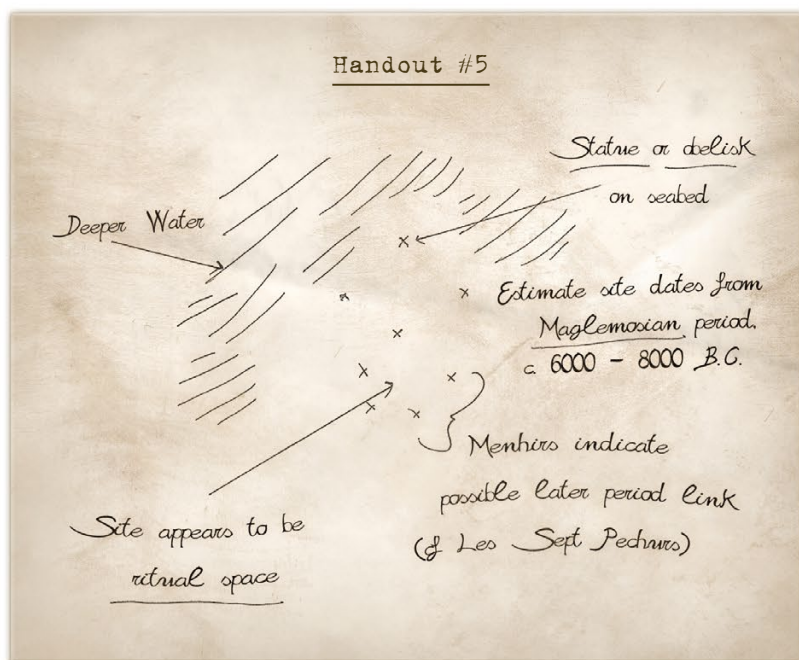 Handout #5
Statue or obelisk
on seabed
Deeper Water
Estimate site dates from
Maglemosian period.
c. 6000 - 8000 B.C.
Menhirs indicate
possible later period link
(cf Les Sept Pecheurs)
Site appears to be
ritual space